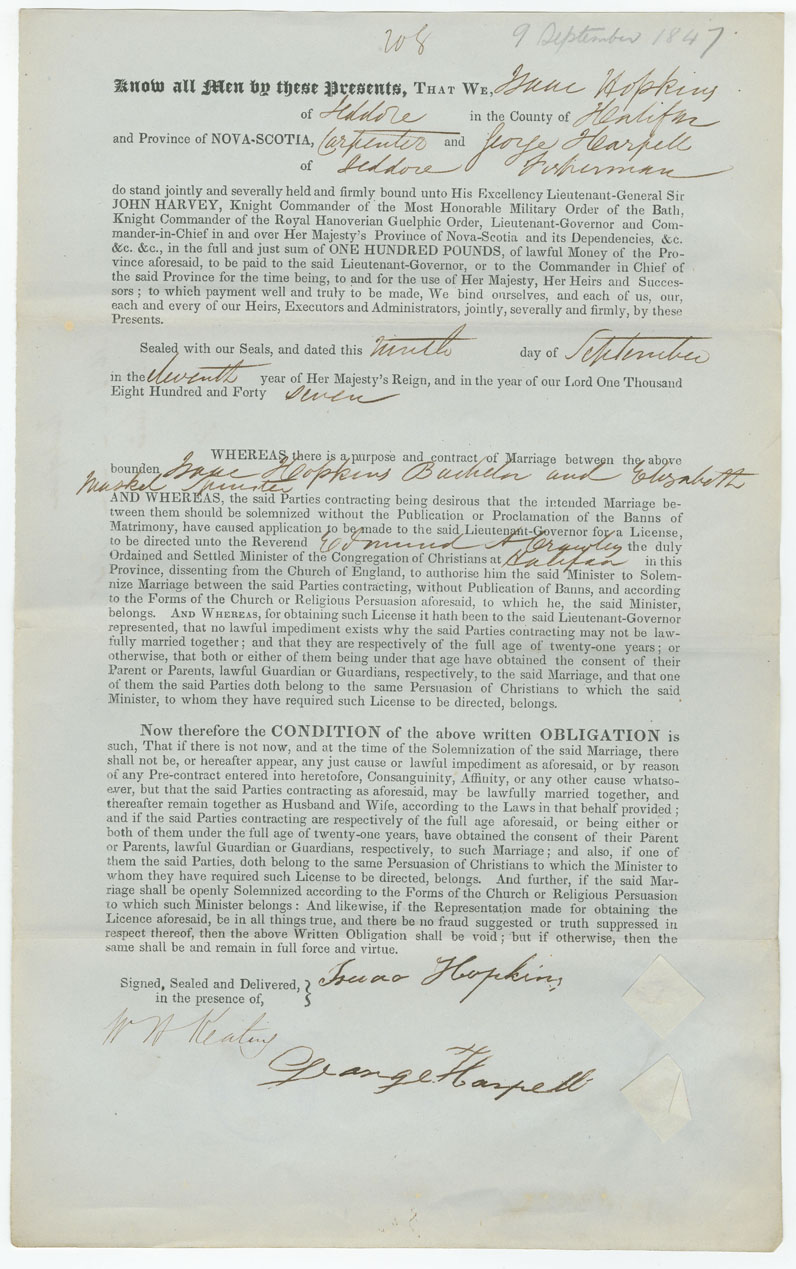 208
9 September 1847
Know all Men by these Presents, THAT WE, Isaac Hopkins
of Jeddore in the County of Halifax
and Province of NOVA-SCOTIA, Carpenter and George Harpell
of Jeddore Fisherman
do stand jointly and severally held and firmly bound unto His Excellency Lieutenant-General Sir
JOHN HARVEY, Knight Commander of the Most Honorable Military Order of the Bath,
Knight Commander of the Royal Hanoverian Guelphic Order, Lieutenant-Governor and Com-
mander-in-Chief in and over Her Majesty's Province of Nova-Scotia and its Dependencies, &c.
&c. &c., in the full and just sum of ONE HUNDRED POUNDS, of lawful Money of the Pro-
vince aforesaid, to be paid to the said Lieutenant-Governor, or to the Commander in Chief of
the said Province for the time being, to and for the use of Her Majesty, Her Heirs and Succes-
sors; to which payment well and truly to be made, We bind ourselves, and each of us, our,
each and every of our Heirs, Executors and Administrators, jointly, severally and firmly, by these
Presents.
Sealed with our Seals, and dated this ninth day of September
in the eleventh year of Her Majesty's Reign, and in the year of our Lord One Thousand
Eight Hundred and Forty seven
WHEREAS there is a purpose and contract of Marriage between the above
bounden Isaac Hopkins Bachelor and Elizabeth
Maskel Spinster
AND WHEREAS, the said Parties contracting being desirous that the intended Marriage be-
tween them should be solemnized without the Publication or Proclamation of the Banns of
Matrimony, have caused application to be made to the said Lieutenant-Governor for a License,
to be directed unto the Reverend Edmund A Crawley the duly
Ordained and Settled Minister of the Congregation of Christians at Halifax in this
Province, dissenting from the Church of England, to authorise him the said Minister to Solem-
nize Marriage between the said Parties contracting, without Publication of Banns, and according
to the Forms of the Church or Religious Persuasion aforesaid, to which he, the said Minister,
belongs. AND WHEREAS, for obtaining such License it hath been to the said Lieutenant-Governor
represented, that no lawful impediment exists why the said Parties contracting may not be law-
fully married together; and that they are respectively of the full age of twenty-one years; or
otherwise, that both or either of them being under that age have obtained the consent of their
Parent or Parents, lawful Guardian or Guardians, respectively, to the said Marriage, and that one
of them the said Parties doth belong to the same Persuasion of Christians to which the said
Minister, to whom they have required such License to be directed, belongs.
Now therefore the CONDITION of the above written OBLIGATION is
such, That if there is not now, and at the time of the Solemnization of the said Marriage, there
shall not be, or hereafter appear, any just cause or lawful impediment as aforesaid, or by reason
of any Pre-contract entered into heretofore, Consanguinity, Affinity, or any other cause whatso-
ever, but that the said Parties contracting as aforesaid, may be lawfully married together, and
thereafter remain together as Husband and Wife, according to the Laws in that behalf provided;
and if the said Parties contracting are respectively of the full age aforesaid, or being either or
both of them under the full age of twenty-one years, have obtained the consent of their Parent
or Parents, lawful Guardian or Guardians, respectively, to such Marriage; and also, if one of
them the said Parties, doth belong to the same Persuasion of Christians to which the Minister to
whom they have required such License to be directed, belongs. And further, if the said Mar-
riage shall be openly Solemnized according to the Forms of the Church or Religious Persuasion
to which such Minister belongs: And likewise, if the Representation made for obtaining the
Licence aforesaid, be in all things true, and there be no fraud suggested or truth suppressed in
respect thereof, then the above Written Obligation shall be void; but if otherwise, then the
same shall be and remain in full force and virtue.
Signed, Sealed and Delivered,
in the presence of,
Isaac Hopkins
W H Keating
George Harpell